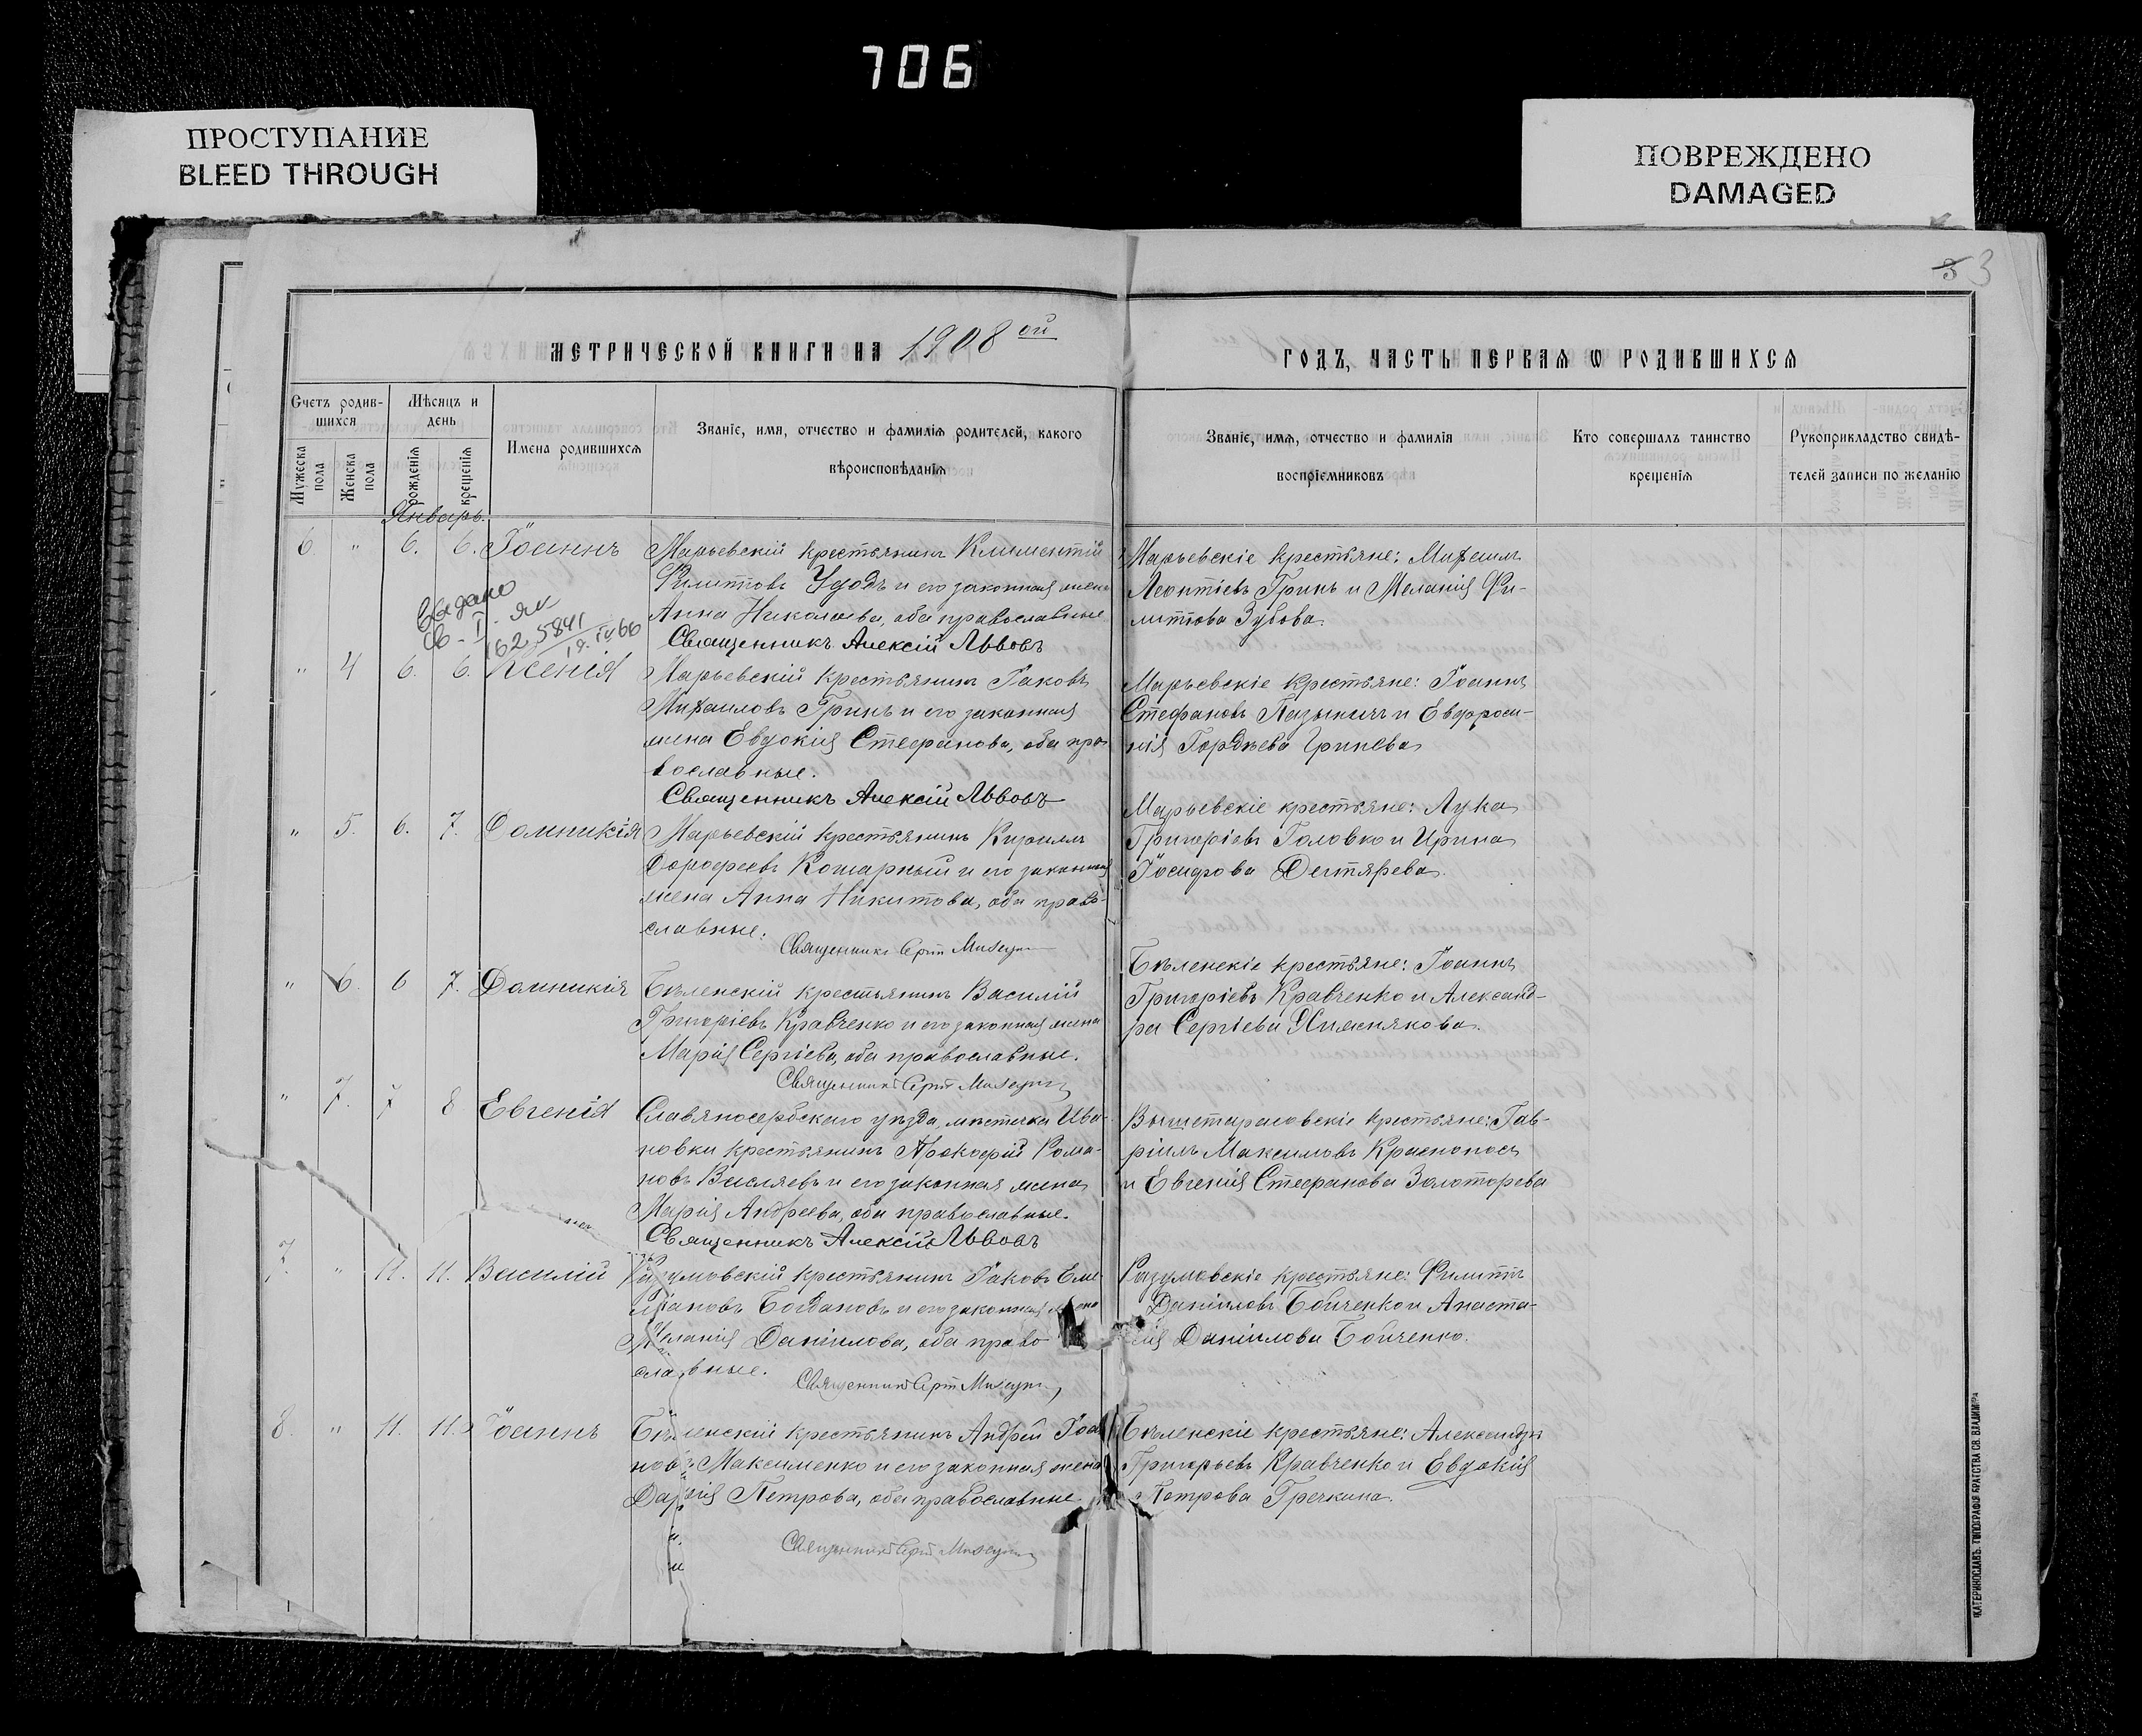 706
ПРОСТУПАНИЕ
BLEED THROUGH
ПОВРЕЖДЕНО
DAMAGED
3 3
МЕТРИЧЕСКОЙ КНИГИ НА 1908 ой
ГОДЪ, ЧАСТЬ ПЕРВАЯ Ѡ РОДИВШИХСЯ
Счетъ родив-
шихся
Мужеска пола
Женска пола
Мѣсяцъ и
день
рожденія
крещенія
Имена родившихся
Званіе, имя, отчество и фамилія родителей, какого
вѣроисповѣданія
Званіе, имя, отчество и фамилія
воспріемниковъ
Кто совершалъ таинство
крещенія
Рукоприкладство свидѣ-
телей записи по желанію
Январь.
6 " 6. 6. Іоаннъ
Марьевскій крестьянинъ Климентій
Филипповъ Удодъ и его законная жена
Анна Николаева, оба православные
Священникъ Алексій Львовъ
Марьевскіе крестьяне: Михаилъ
Леонтіевъ Гринь и Меланія Фи-
липпова Зубова.
Выдано
св-I-як
162 5841
19.IV 66
" 4 6. 6. Ксенія
Марьевскій крестьянинъ Іаковъ
Михаиловъ Гринь и его законная
жена Евдокія Стефанова, оба пра-
вославные.
Священникъ Алексій Львовъ
Марьевскіе крестьяне: Іоаннъ
Стефановъ и Евфроси-
нія Гордѣева Гринева
" 5. 6. 7. Домникія
Марьевскій крестьянинъ Кириллъ
Дорофеевъ Кошарный и его законная
жена Анна Никитова, оба право-
славные.
Священникъ
Марьевскіе крестьяне: Лука
Григоріевъ Головко и Ирина
Іосифова Дегтярева.
" 6. 6 7. Домникія
Бѣленскій крестьянинъ Василій
Григоріевъ Кравченко и его законная жена
Марія Сергіева, оба православные.
Священникъ
Бѣленскіе крестьяне: Іоаннъ
Григоріевъ Кравченко и Александ-
ра Сергіева
" 7. 7 8 Евгенія
Славяносербскаго уѣзда, мѣстечка Ива-
новки крестьянинъ Прокофій Рома-
новъ и его законная жена
Марія Андреева, оба православные.
Священникъ Алексій Львовъ
Вышетарасовскіе крестьяне: Гав-
ріилъ Максимовъ Красноносъ
и Евгенія Стефанова Золоторева
7. " 11. 11. Василій
Разумовскій крестьянинъ Іаковъ Еме-
ліановъ Богдановъ и его законная жена
Меланія Даніилова, оба право-
славные.
Священникъ
Разумовскіе крестьяне: Филиппъ
Даніиловъ Бойченко и Анаста-
сія Даніилова Бойченко.
8. " 11. 11. Іоаннъ
Бѣленскій крестьянинъ Андрей Іоан-
новъ Максименко и его законная жена
Дарія Петрова, оба православные.
Священникъ
Бѣленскіе крестьяне: Александръ
Григорьевъ Кравченко и Евдокія
Петрова Гречкина.
ЕКАТЕРИНОСЛАВЪ. ТИПОГРАФІЯ БРАТСТВА СВ. ВЛАДИМІРА